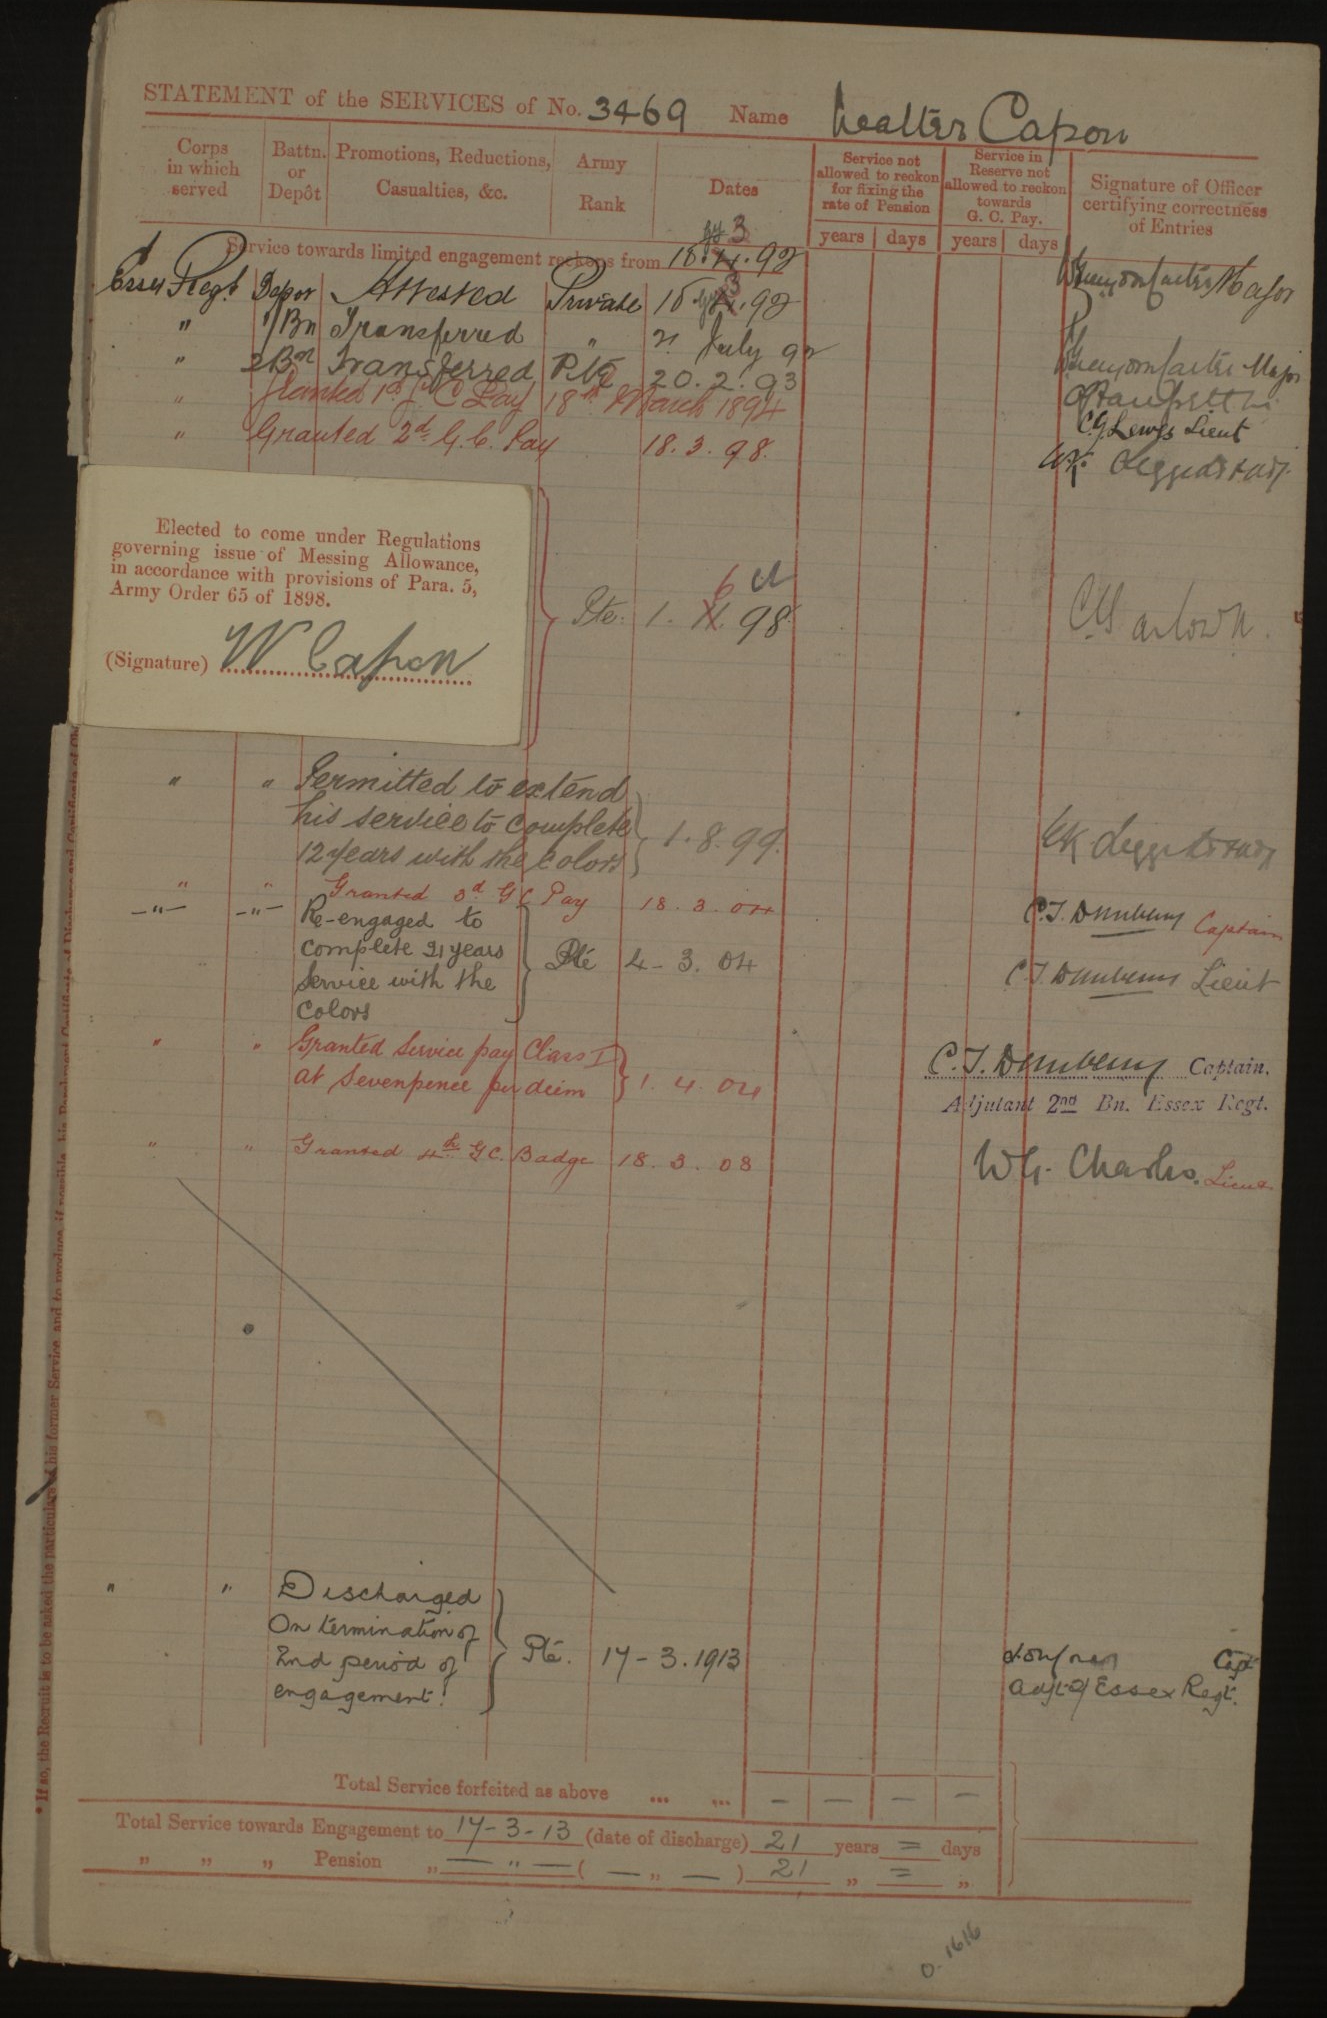 STATEMENT of the SERVICES of No. 3469 Name Walter Capon
Corps in which served
Battn. or Depôt
Promotions, Reductions, Casualties, &c.
Army Rank
Dates
Service not allowed to reckon for fixing the rate of Pension
Service in Reserve not allowed to reckon towards G. C. Pay.
Signature of Officer certifying correctness of Entries
years days years days
Service towards limited engagement reckons from 18. 3 .92
Essex Regt Depot Attested Private 18. 3 .92 Major
" 1/Bn Transferred " 21 July 92
" 2Bn Transferred Pte 20.2.93 Major
" Granted 1st G C Pay 18th March 1894
C.G. Lewis Lieut
" Granted 2d G.C. Pay 18.3.98.
Elected to come under Regulations
governing issue of Messing Allowance,
in accordance with provisions of Para. 5,
Army Order 65 of 1898.
(Signature) W Capon
Pte. 1. 6 98
" " Permitted to extend
his service to complete
12 years with the colors
1.8.99.
" " Granted 3d GC Pay 18.3.04 Captain
-"- -"- Re-engaged to
complete 21 years
Service with the
Colors
Pte 4-3.04 Lieut
" " Granted Service pay Class I
at Sevenpence per diem 1.4.04
C.T. Captain.
Adjutant 2nd Bn. Essex Regt.
" " Granted 4th GC. Badge 18.3.08 W.G. Charles. Lieut
" " Discharged
On termination of
2nd period of
engagement.
Pte. 17-3.1913
Capt
Adjt 2/ Essex Regt.
Total Service forfeited as above ... ... — — — —
Total Service towards Engagement to 17-3-13 (date of discharge) 21 years = days
" " " Pension " — " — ( — " — ) 21 " = "
O.1616
* If so, the Recruit is to be asked the particulars of his former Service, and to produce, if possible, his Parchment Certificate of Discharge and Certificate of